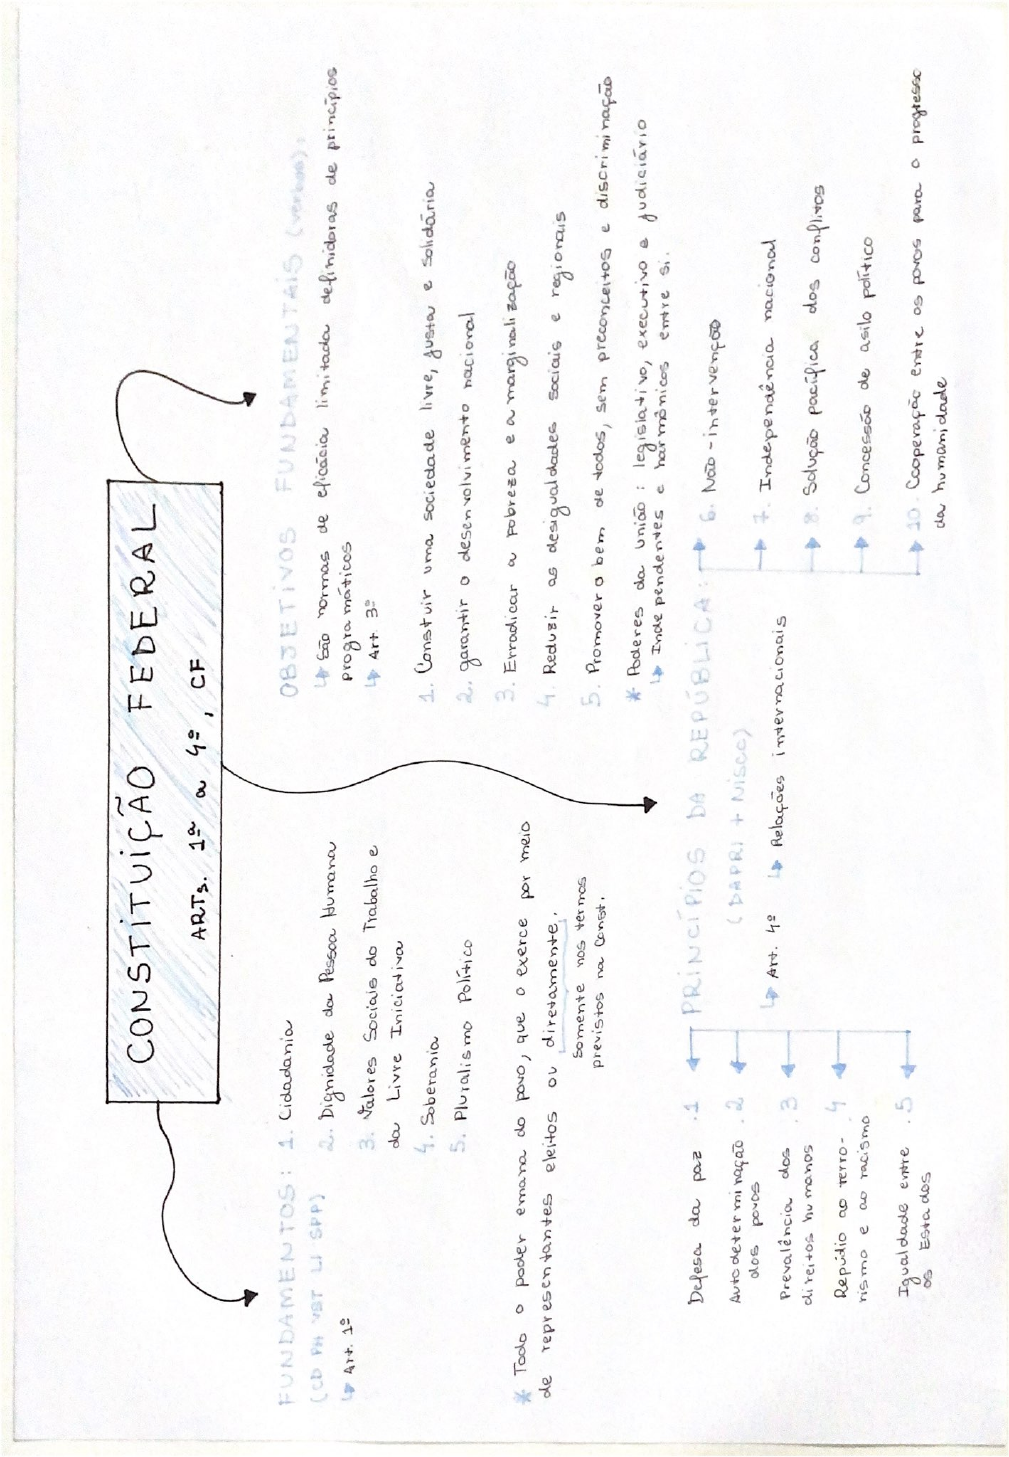 CONSTITUIÇÃO FEDERAL
ARTs. 1º a 4º, CF
FUNDAMENTOS:
(CD PH VST LI SPP)
↳ Art. 1º
1. Cidadania
2. Dignidade da Pessoa Humana
3. Valores Sociais do Trabalho e
da Livre Iniciativa
4. Soberania
5. Pluralismo Político
* Todo o poder emana do povo, que o exerce por meio
de representantes eleitos ou diretamente,
somente nos termos
previstos na Const.
OBJETIVOS FUNDAMENTAIS (verbos):
↳ São normas de eficácia limitada definidoras de princípios
programáticos
↳ Art 3º
1. Construir uma sociedade livre, justa e solidária
2. garantir o desenvolvimento nacional
3. Erradicar a pobreza e a marginalização
4. Reduzir as desigualdades sociais e regionais
5. Promover o bem de todos, sem preconceitos e discriminação
* Poderes da união: legislativo, executivo e judiciário
↳ Independentes e harmônicos entre si.
PRINCÍPIOS DA REPÚBLICA:
(DAPRI + NISCC)
↳ Art. 4º ↳ Relações internacionais
Defesa da paz .1
Autodeterminação .2
dos povos
Prevalência dos .3
direitos humanos
Repúdio ao terro- .4
rismo e ao racismo
Igualdade entre .5
os Estados
6. Não-intervenção
7. Independência nacional
8. Solução pacífica dos conflitos
9. Concessão de asilo político
10. Cooperação entre os povos para o progresso
da humanidade